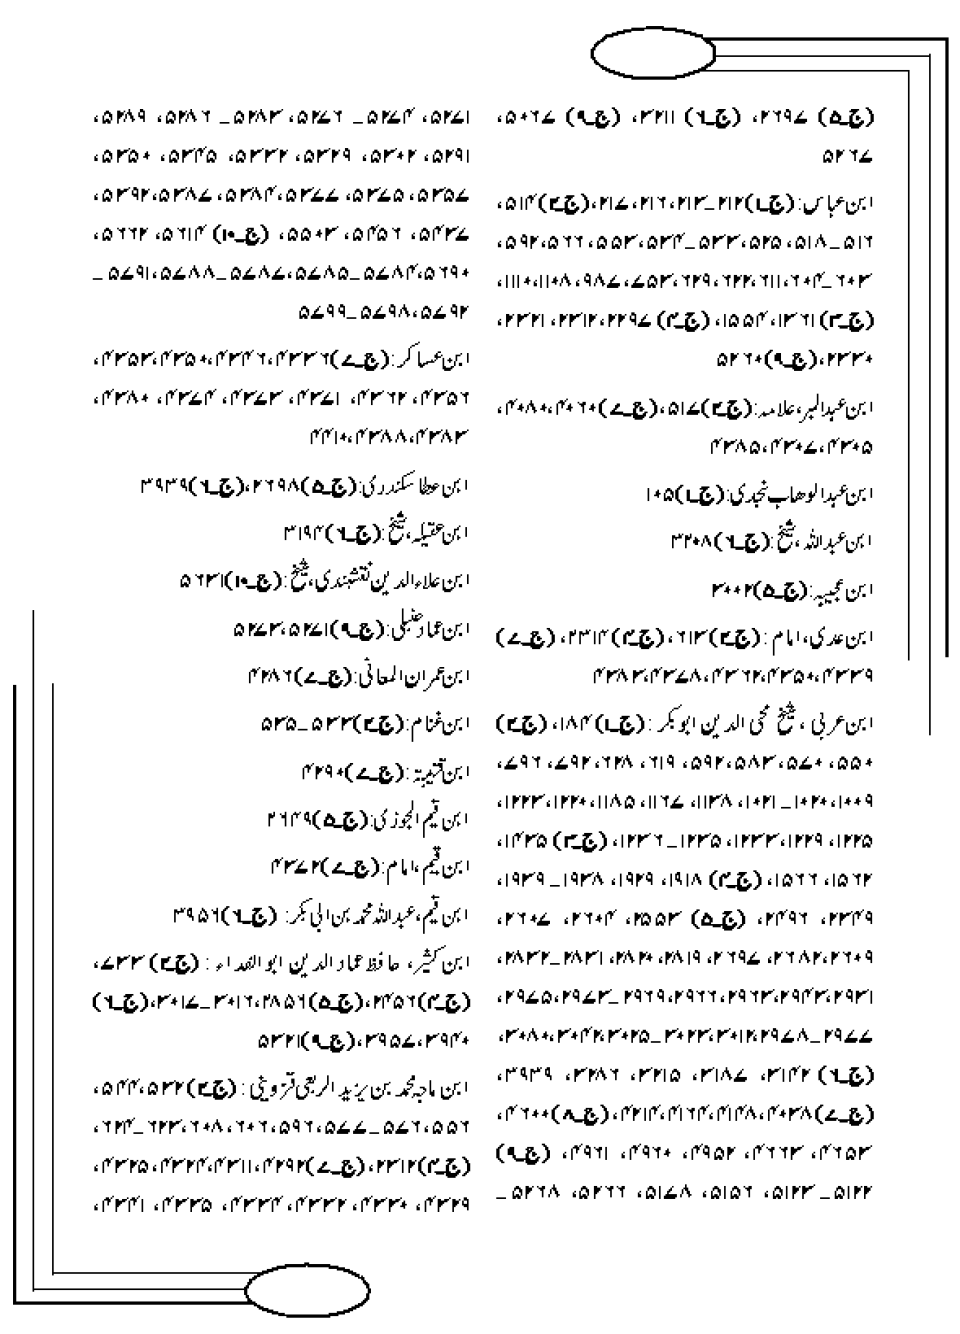 (ج۔۵) ۲۶۹۷، (ج۔۶) ۳۲۱۱، (ج۔۹) ۵۰۶۷،
۵۲۶۷
ابن عباس: (ج۔۱) ۲۱۲۔۲۱۳، ۲۱۶، ۲۱۷، (ج۔۲) ۵۱۴،
۵۱۶۔۵۱۸، ۵۲۵، ۵۳۳۔۵۳۴، ۵۵۳، ۵۶۶، ۵۹۲،
۶۰۳۔۶۰۴، ۶۱۱، ۶۲۲، ۶۲۹، ۶۵۳، ۹۸۷، ۱۱۰۸، ۱۱۱۰،
(ج۔۳) ۱۳۶۱، ۱۵۵۴، (ج۔۴) ۲۲۹۷، ۲۳۱۲، ۲۳۲۱،
۲۳۳۰، (ج۔۹) ۵۲۶۰
ابن عبدالبر، علامہ: (ج۔۲) ۵۱۷، (ج۔۷) ۴۰۶۰، ۴۰۸۰،
۴۳۰۵، ۴۳۰۷، ۴۳۸۵
ابن عبدالوھاب نجدی: (ج۔۱) ۱۰۵
ابن عبداللہ، شیخ: (ج۔۶) ۳۲۰۸
ابن عجیبہ: (ج۔۵) ۳۰۰۲
ابن عدی، امام: (ج۔۲) ۶۱۳، (ج۔۴) ۲۳۱۴، (ج۔۷)
۴۳۳۹، ۴۳۵۰، ۴۳۶۲، ۴۳۷۸، ۴۳۸۳
ابن عربی، شیخ محی الدین ابوبکر: (ج۔۱) ۱۸۴، (ج۔۲)
۵۵۰، ۵۷۰، ۵۸۳، ۵۹۲، ۶۱۹، ۶۲۸، ۶۹۲، ۶۹۷،
۱۰۰۹، ۱۰۲۰۔۱۰۲۱، ۱۱۳۸، ۱۱۶۷، ۱۱۸۵، ۱۲۲۰، ۱۲۲۳،
۱۲۲۵، ۱۲۲۹، ۱۲۳۳، ۱۲۳۵۔۱۲۳۶، (ج۔۳) ۱۴۳۵،
۱۵۶۲، ۱۵۶۶، (ج۔۴) ۱۹۱۸، ۱۹۲۹، ۱۹۳۸۔۱۹۳۹،
۲۳۴۹، ۲۴۹۶، (ج۔۵) ۲۵۵۳، ۲۶۰۴، ۲۶۰۷،
۲۶۰۹، ۲۶۸۲، ۲۶۹۷، ۲۸۱۹، ۲۸۲۰، ۲۸۳۱۔۲۸۳۲،
۲۹۳۱، ۲۹۴۳، ۲۹۶۳، ۲۹۶۶، ۲۹۶۹۔۲۹۷۳، ۲۹۷۵،
۲۹۷۷۔۲۹۷۸، ۳۰۱۲، ۳۰۲۳۔۳۰۲۵، ۳۰۴۲، ۳۰۸۰،
(ج۔۶) ۳۱۴۲، ۳۱۸۷، ۳۲۱۵، ۳۲۸۶، ۳۹۳۹،
(ج۔۷) ۴۰۳۸، ۴۱۴۸، ۴۱۶۴، ۴۲۱۴، (ج۔۸) ۴۶۰۰،
۴۶۵۳، ۴۶۶۳، ۴۹۵۲، ۴۹۶۰، ۴۹۶۱، (ج۔۹)
۵۱۲۲۔۵۱۲۳، ۵۱۵۶، ۵۱۷۸، ۵۲۶۶، ۵۲۶۸۔
۵۲۷۱، ۵۲۷۴۔ ۵۲۷۶، ۵۲۸۳۔ ۵۲۸۶، ۵۲۸۹،
۵۲۹۱، ۵۳۰۲، ۵۳۲۹، ۵۳۳۲، ۵۳۴۵، ۵۳۵۰،
۵۳۵۷، ۵۳۷۵، ۵۳۷۷، ۵۳۸۴، ۵۳۸۷، ۵۳۹۲،
۵۴۳۷، ۵۴۵۶، ۵۵۰۳، (ج۔۱۰) ۵۶۱۴، ۵۶۶۲،
۵۶۹۰، ۵۷۸۴۔۵۷۸۵، ۵۷۸۷۔۵۷۸۸، ۵۷۹۱۔
۵۷۹۲، ۵۷۹۸۔۵۷۹۹
ابن عساکر: (ج۔۷) ۴۳۳۶، ۴۳۴۶، ۴۳۵۰، ۴۳۵۳،
۴۳۵۶، ۴۳۶۲، ۴۳۷۱، ۴۳۷۳، ۴۳۷۴، ۴۳۸۰،
۴۳۸۳، ۴۳۸۸، ۴۴۱۰
ابن عطا سکندری: (ج۔۵) ۲۶۹۸، (ج۔۶) ۳۹۳۹
ابن عقیلہ، شیخ: (ج۔۶) ۳۱۹۴
ابن علاءالدین نقشبندی، شیخ: (ج۔۱۰) ۵۶۳۱
ابن عماد حنبلی: (ج۔۹) ۵۲۷۱، ۵۲۷۳
ابن عمران المعافی: (ج۔۷) ۴۲۸۶
ابن غنام: (ج۔۲) ۵۳۳۔۵۳۵
ابن قتیبۃ: (ج۔۷) ۴۲۹۰
ابن قیم الجوزی: (ج۔۵) ۲۶۴۹
ابن قیم، امام: (ج۔۷) ۴۳۷۲
ابن قیم، عبداللہ محمد بن ابی بکر: (ج۔۶) ۳۹۵۶
ابن کثیر، حافظ عماد الدین ابوالفداء: (ج۔۲) ۷۳۳،
(ج۔۴) ۲۴۵۶، (ج۔۵) ۲۸۵۶، ۳۰۱۶۔۳۰۱۷، (ج۔۶)
۳۹۴۰، ۳۹۵۷، (ج۔۹) ۵۳۲۱
ابن ماجہ محمد بن یزید الربعی قزوینی: (ج۔۲) ۵۳۲، ۵۴۴،
۵۵۶، ۵۷۶۔۵۷۷، ۵۹۶، ۶۰۶، ۶۰۸، ۶۲۳۔۶۲۴،
(ج۔۴) ۲۳۱۲، (ج۔۷) ۴۲۹۲، ۴۳۱۱، ۴۳۲۴، ۴۳۲۵،
۴۳۲۹، ۴۳۳۰، ۴۳۳۲، ۴۳۳۴، ۴۳۳۵، ۴۳۴۱،